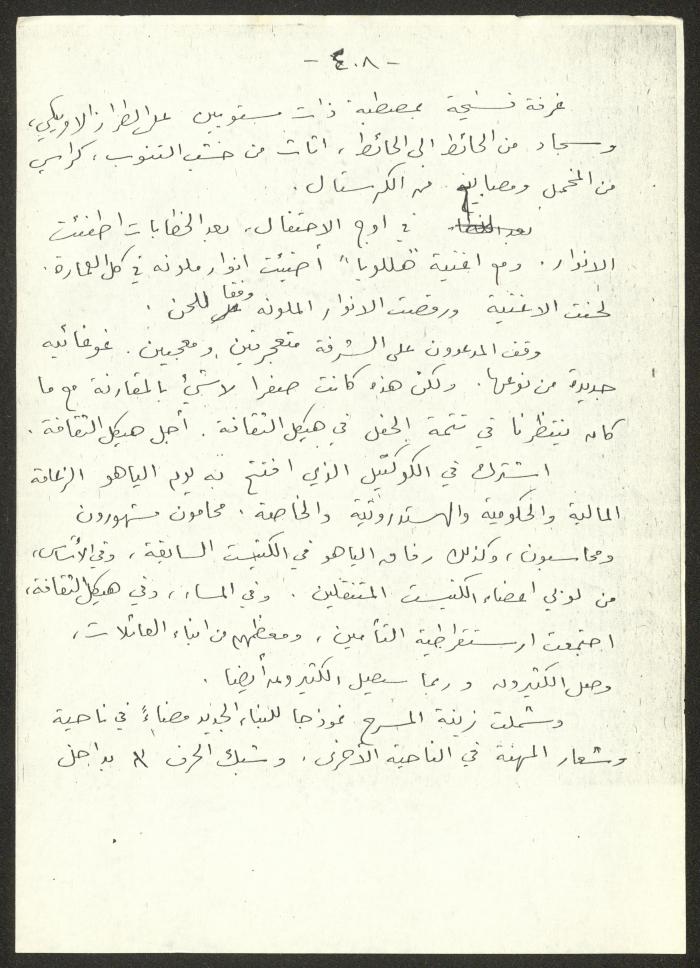 - ٤٠٨ -
غرفة فسيحة بمصطبة ذات مستويين على الطراز الامريكي،
وسجاد من الحائط الى الحائط، اثاث من خشب التنوب، كراسي
من المخمل ومصابيح من الكرستال.
في اوج الاحتفال، بعد الخطابات اطفئت
الانوار. ومع اغنية "هللويا" أضيئت انوار ملونه في كل العمارة.
لحقت الاغنية ورقصت الانوار الملونه وفقا للحن.
وقف المدعوون على الشرفة متعجرفين ومعجبين. غوغائيه
جديدة من نوعها. ولكن هذه كانت صفرا ولا شيئ بالمقارنة مع ما
كان ينتظرنا في تتمة الحفل في هيكل الثقافة. أجل هيكل الثقافة.
اشترك في الكوكتيل الذي افتتح به يورم الياهو الزعامة
المالية والحكومية والهستدروتية والخاصة. محامون مشهورون
ومحاسبون، وكذلك رفاق الياهو في الكنيست السابقة، وفي الأساس،
من لوبي اعضاء الكنيست المتنقلين. وفي المساء، وفي هيكل الثقافة،
اجتمعت ارستقراطية التأمين، ومعظمهم من ابناء العائلات،
وصل الكثيرون وربما سيصل الكثيرون أيضا.
وشملت زينة المسرح نموذجا للبناء الجديد مضاءً في ناحية
وشعار المهنة في الناحية الأخرى. وشبك الحرف بداخل